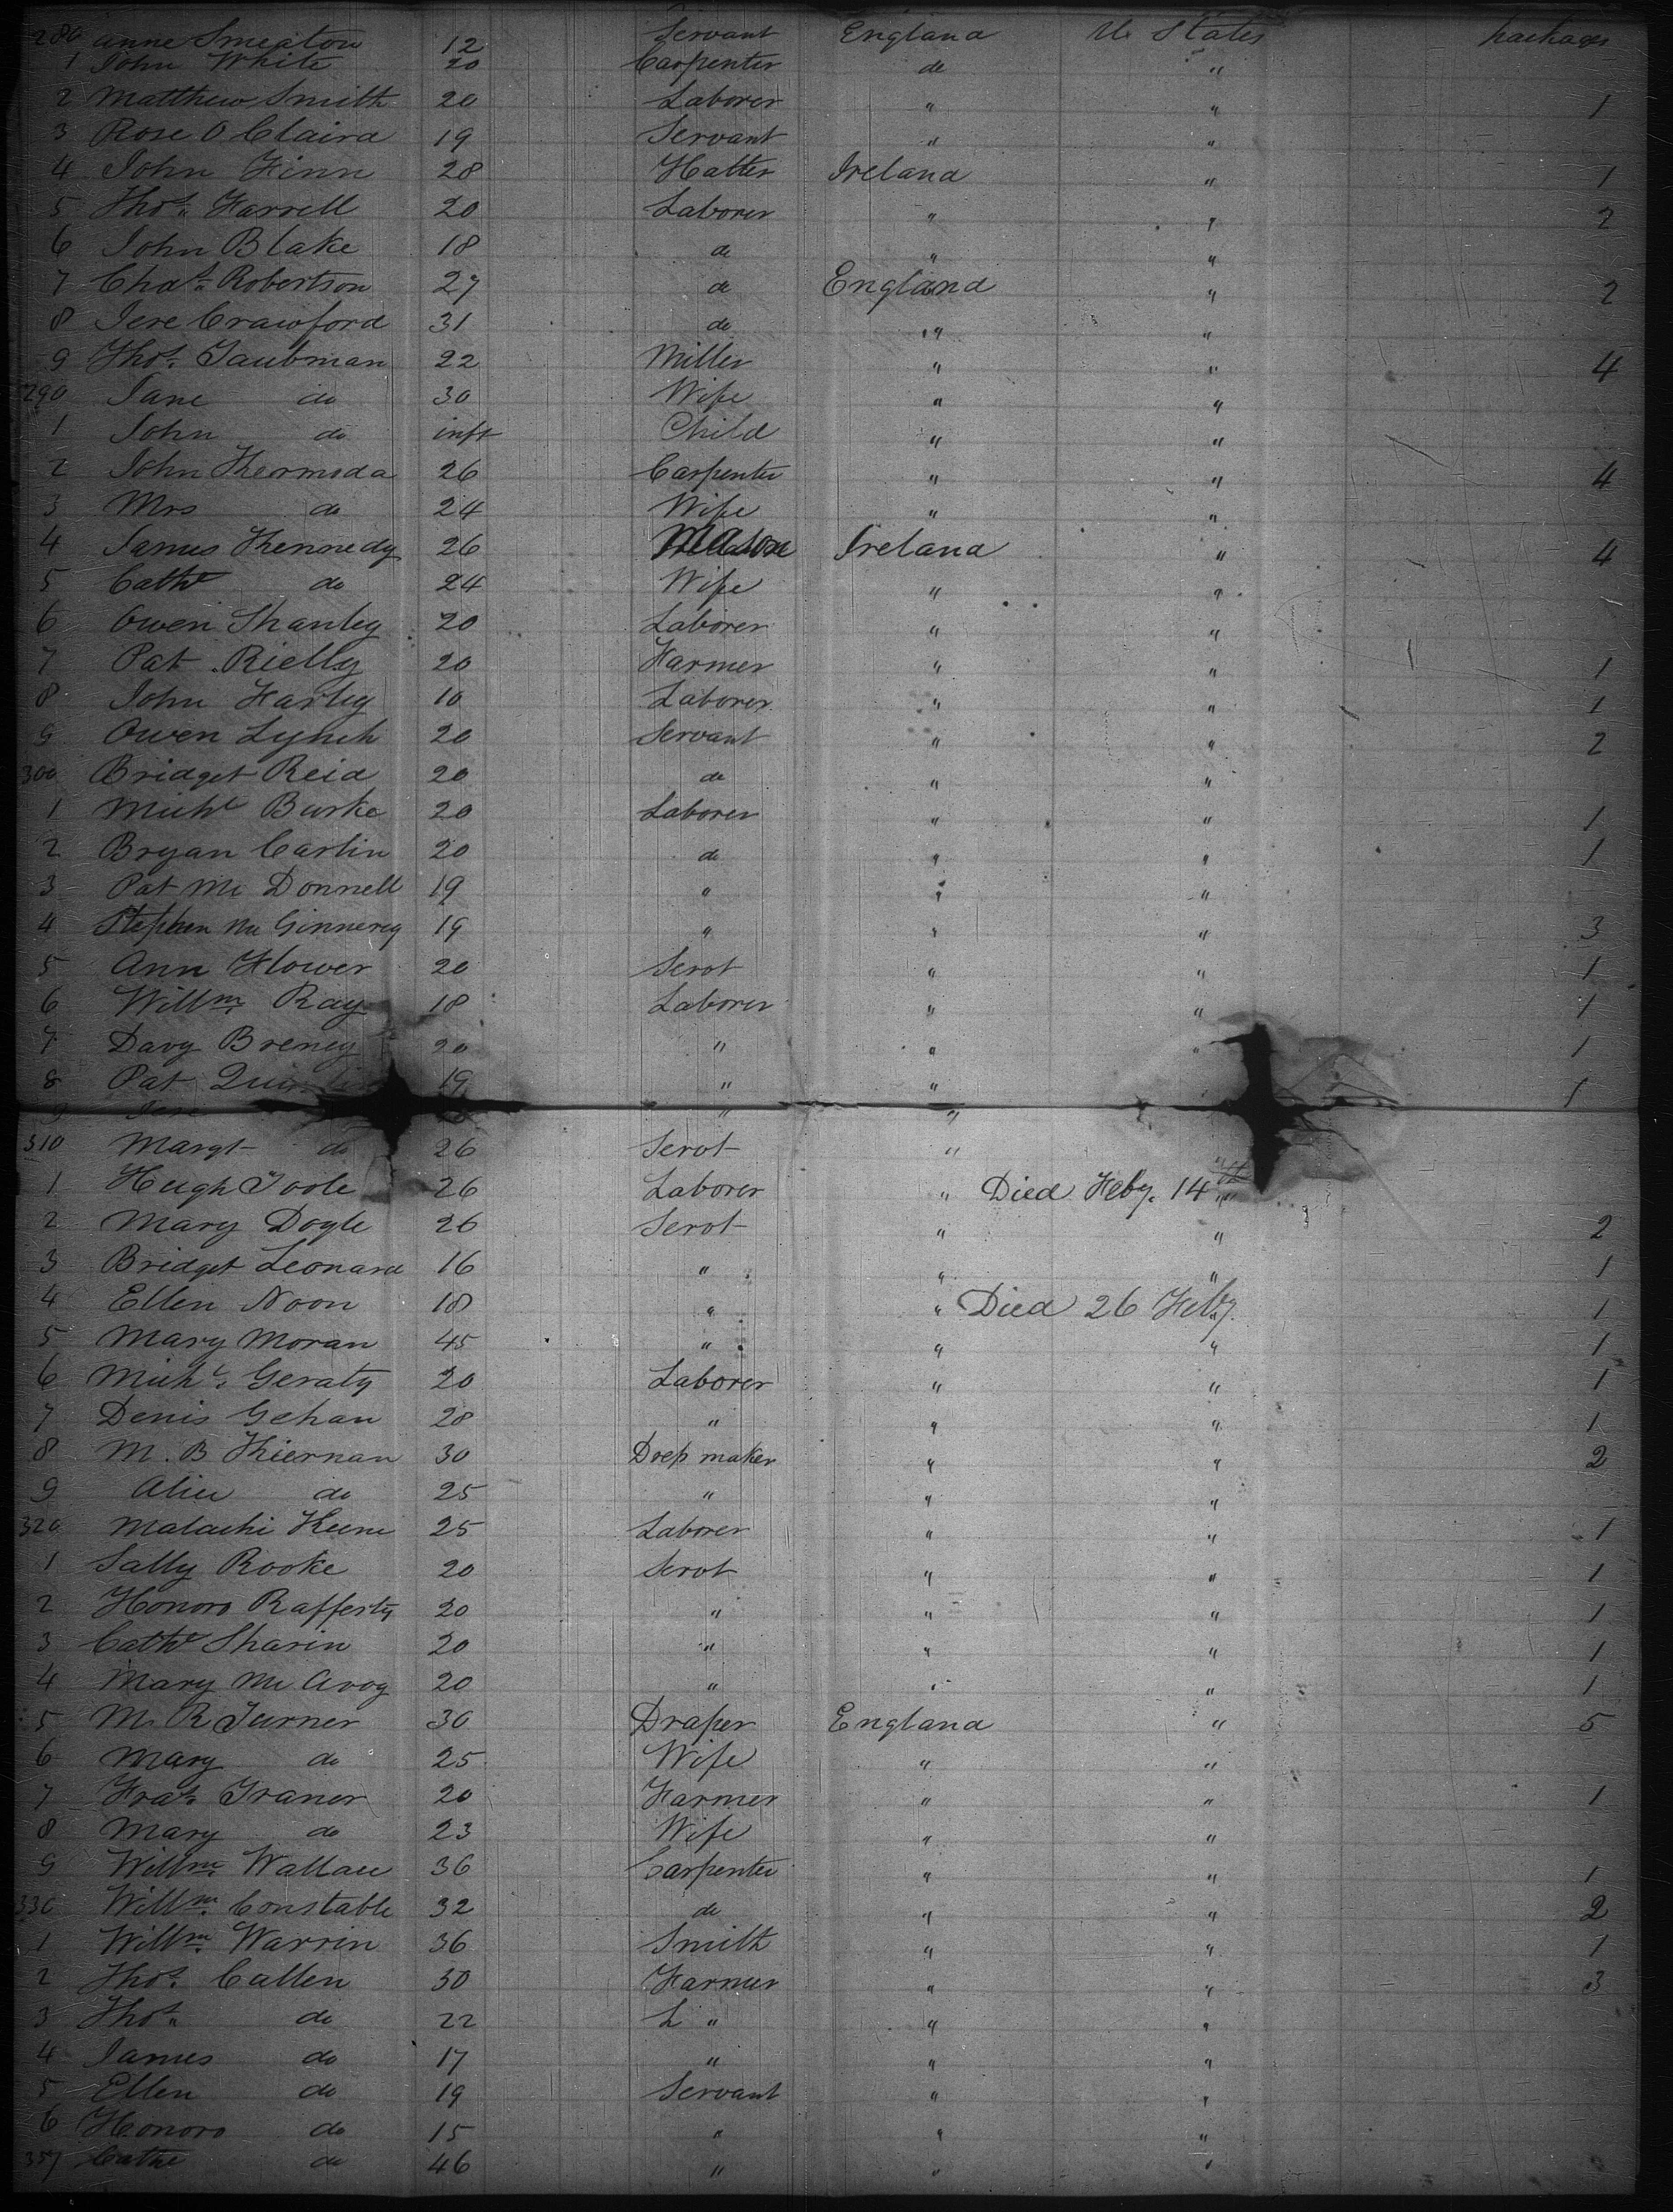 280 Anne Smeaton 12 Servant England U. States packages
1 John White 20 Carpenter do "
2 Matthew Smith 20 Laborer " " 1
3 Rose O Claird 19 Servant " "
4 John Finn 28 Hatter Ireland " 1
5 Thos. Farrell 20 Laborer " " 2
6 John Blake 18 do " "
7 Chas. Robertson 27 do England " 2
8 Jere Crawford 31 do " "
9 Thos. Taubman 22 Miller " " 4
290 Jane do 30 Wife " "
1 John do inft Child " "
2 John Kermoda 26 Carpenter " " 4
3 Mrs do 24 Wife " "
4 James Kennedy 26 Mason Ireland " 4
5 Cathe do 24 Wife " "
6 Owen Shanley 20 Laborer " "
7 Pat Rielly 20 Farmer " " 1
8 John Harley 10 Laborer " " 1
9 Owen Lynch 20 Servant " " 2
300 Bridget Reid 20 do " "
1 Michl Burke 20 Laborer " " 1
2 Bryan Carlin 20 do " " 1
3 Pat Mc Donnell 19 " " "
4 Stephen Mc Ginnerey 19 " " " 3
5 Ann Flower 20 Servt " " 1
6 Willm. Ray 18 Laborer " " 1
7 Davy Breney 20 " " " 1
8 Pat 19 " " 1
9 Jere " "
310 Margt do 26 Servt " "
1 Hugh Toole 26 Laborer " Died Feby. 14th "
2 Mary Doyle 26 Servt " " 2
3 Bridget Leonard 16 " " " 1
4 Ellen Noon 18 " " Died 26 Feby. 1
5 Mary Moran 45 " " " 1
6 Michl. Geraty 20 Laborer " " 1
7 Denis Gehan 28 " " " 1
8 M. B Kiernan 30 Dress maker " " 2
9 Alice do 25 " " "
320 Malachi Keene 25 Laborer " " 1
1 Sally Rooke 20 Servt " " 1
2 Honoro Rafferty 20 " " " 1
3 Cathe Sharin 20 " " " 1
4 Mary Mc Avoy 20 " " " 1
5 M. R Turner 30 Draper England " 5
6 Mary do 25 Wife " "
7 Fras. Traner 20 Farmer " " 1
8 Mary do 23 Wife " "
9 Willm. Wallace 36 Carpenter " " 1
330 Willm. Constable 32 do " " 2
1 Willm. Warrin 36 Smith " " 1
2 Thos. Callen 50 Farmer " " 3
3 Thos. do 22 L " " "
4 James do 17 " " "
5 Ellen do 19 Servant " "
6 Honoro do 15 " " "
357 Cathe do 46 " " "